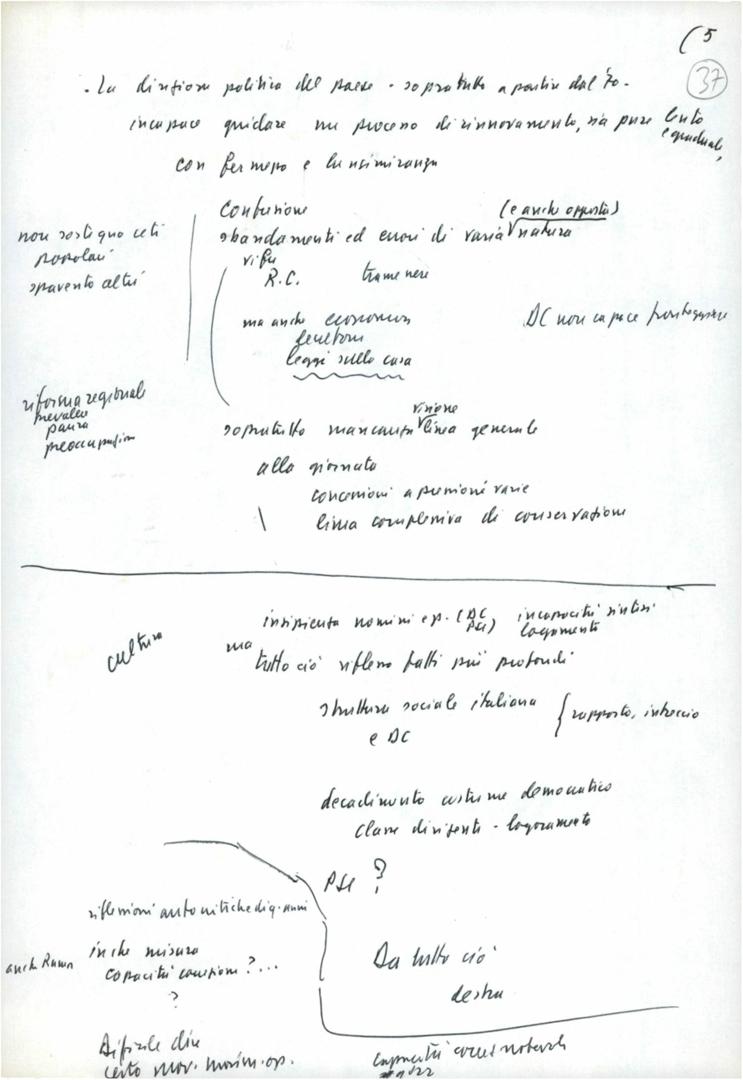 (5
37
. La direzione politica del paese - sopratutto a partire dal '70 -
incapace guidare un processo di rinnovamento, sia pure lento
e graduale,
con fermezza e lungimiranza
Confusione
(e anche opposta)
sbandamenti ed errori di varia natura
non sostegno ceti
popolari
spavento altri
R.C. trame nere
ma anche economia
DC non capace
leggi sulla casa
riforma regionale
prevalse
paura
preoccupazioni
visione
sopratutto mancanza linea generale
alla giornata
concessioni a pressioni varie
linea complessiva di conservazione
cultura
insipienza uomini es. (DC PSI) incapacità sintesi
logoramento
ma
tutto ciò riflesso fatti più profondi
struttura sociale italiana { rapporto, intreccio
e DC
decadimento costume democratico
classe dirigente - logoramento
PSI ?
riflessioni autocritiche di q. anni
in che misura
anche
capacità correzioni ? ...
?
Da tutto ciò
destra
Difficile dire
certo mov. op.
capacità notevoli